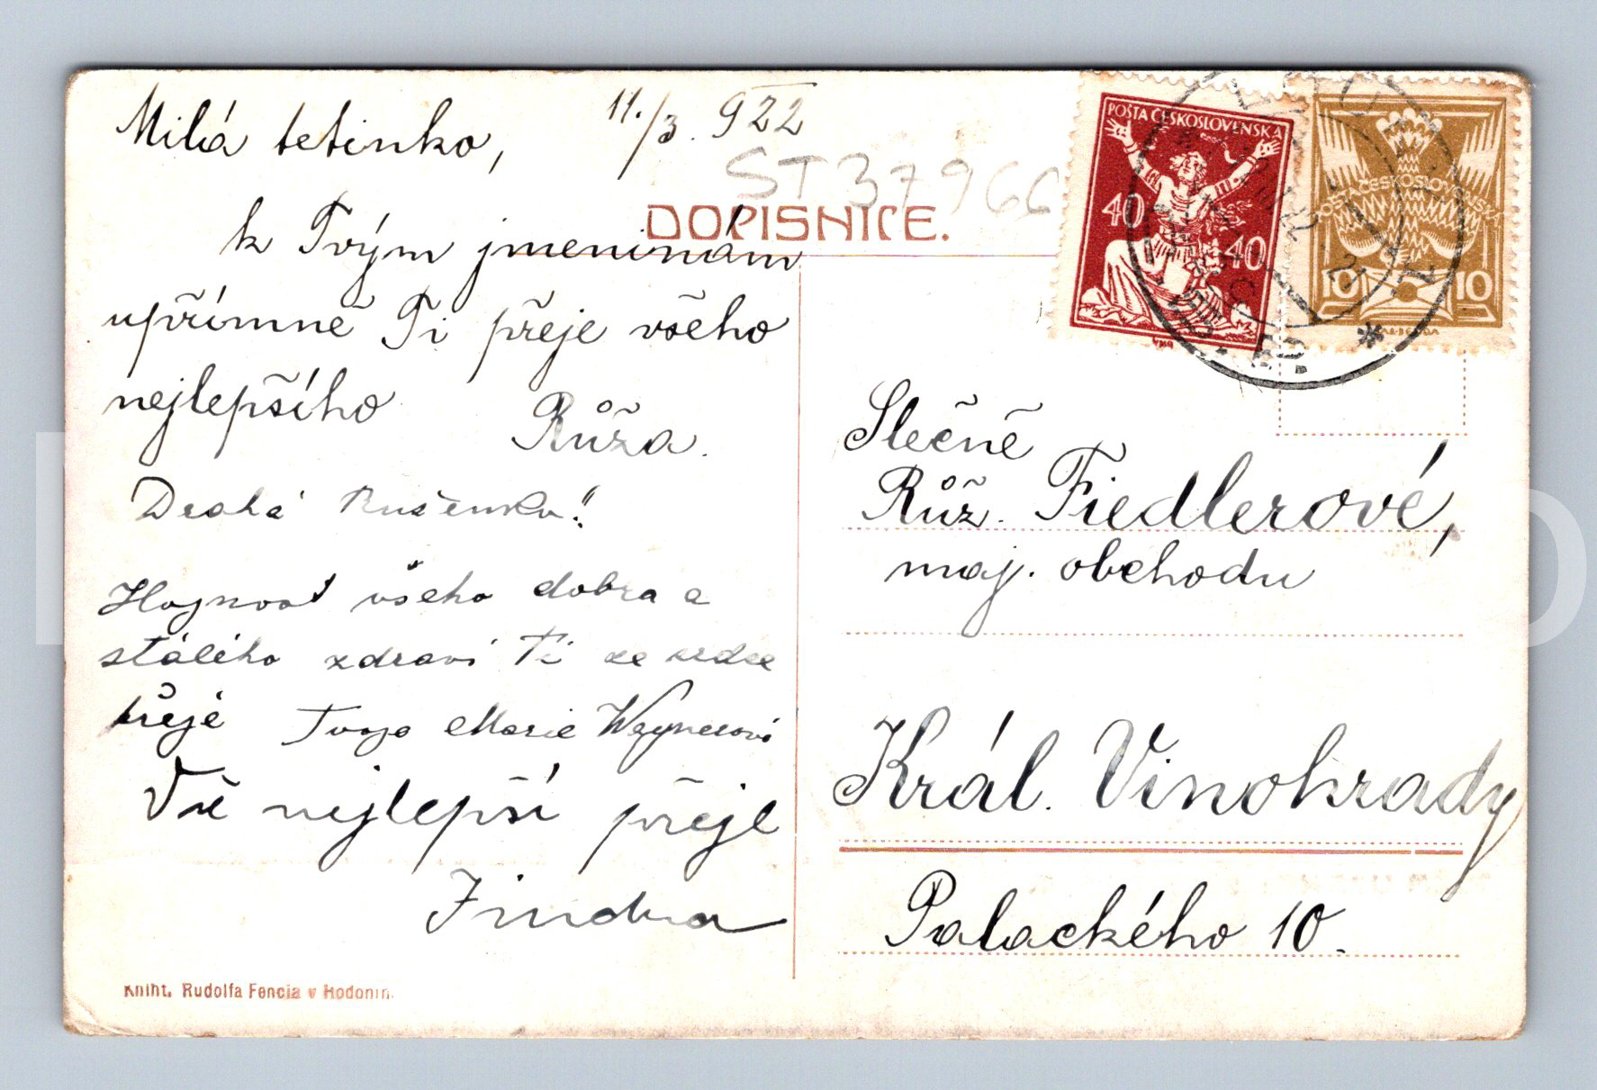 Milá tetinko,
11./3. 922
ST 37966
DOPISNICE.
k Tvým jmeninám
upřímně Ti přeje všeho
nejlepšího
Růža.
Drahá Ruženko!
Hojnost všeho dobra a
stálého zdraví Ti ze srdce
přeje Tvoje Marie Wagnerová
Vše nejlepší přeje
Jindra
Kniht. Rudolfa Fencla v Hodoníně.
POŠTA ČESKOSLOVENSKÁ
40 40
POŠTA ČESKOSLOVENSKÁ
10 10
Slečně
Růž. Fiedlerové,
maj. obchodu
Král. Vinohrady
Palackého 10.